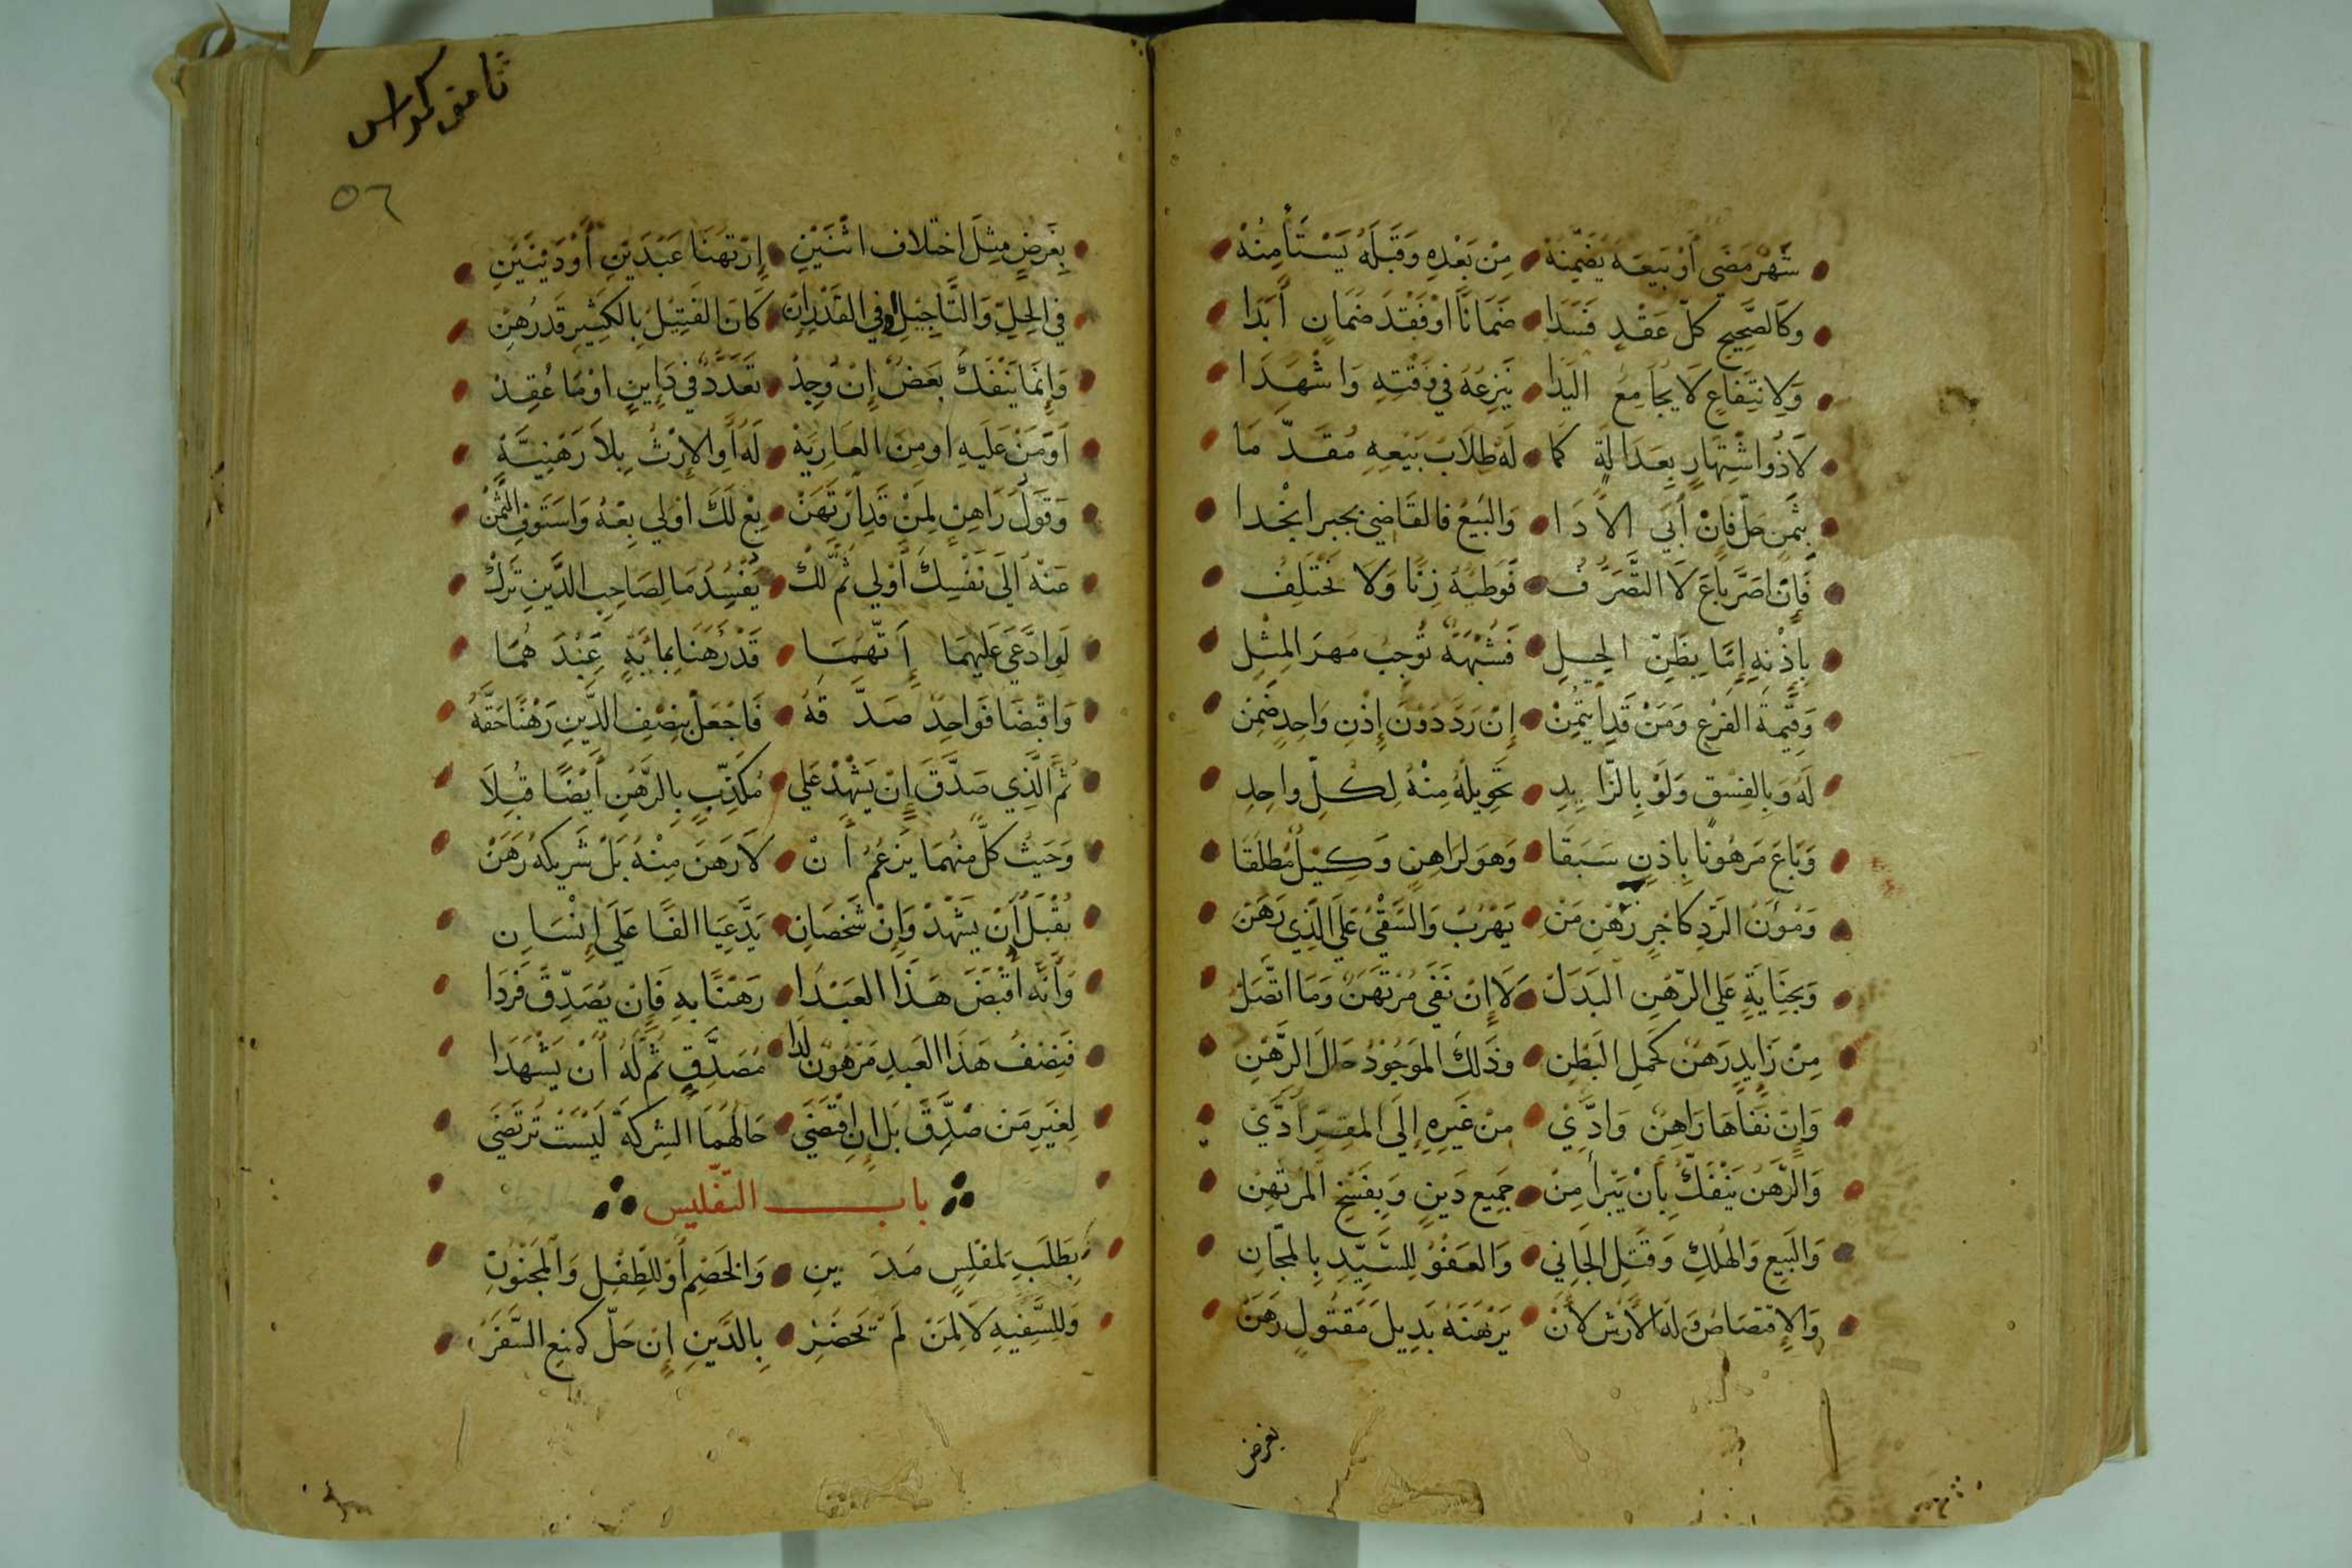 شَهْرٌ مَضَى أَوْ بَيْعَهُ يَضْمَنُهْ • مِنْ بَعْدِهِ وَقَبْلَهُ يَسْتَأْمِنُهْ
وَكَالصَّحِيحِ كُلُّ عَقْدٍ فَسَدَا • ضَمَانًا اوْ فَقْدَ ضَمَانٍ أَبَدَا
وَلِانْتِفَاعٍ لَا يُجَامِعُ الْيَدَا • يَنْزِعُهُ فِي وَقْتِهِ وَاشْهَدَا
لَا ذُو اشْتِهَارٍ بِعَدَالَةٍ كَمَا • لَهُ طِلَابُ بَيْعِهِ مُقَدَّمَا
بِثَمَنٍ حَلَّ فَإِنْ أَبَى الأَدَا • وَالبَيْعَ فالقَاضِي بجبر ايخدا
فَإِنْ اصَرَّ بَاعَ لَا التَّصَرُّفُ • فَوَطْيُهُ زِنًا وَلَا نَخْتَلِفُ
بِإِذْنِهِ إِمَّا بِظَنِّ الحِلِّ • فَشُبْهَةٌ تُوجِبُ مَهْرَ المِثْلِ
وَقِيمَةَ الفَرْعِ وَمَنْ قَدِ ايتُمِنْ • إِنْ رَدَّ دُونَ إِذْنِ وَاحِدٍ ضَمِنْ
لَهُ وَبِالفِسْقِ وَلَوْ بِالزَّايِدِ • تَحْوِيلُهُ مِنْهُ لِكُلِّ وَاحِدِ
وَبَاعَ مَرْهُونًا بِاذْنٍ سَبَقَا • وَهْوَ لِرَاهِنٍ وَكِيْلٌ مُطْلَقَا
وَمُؤَنُ الرَّدِّ كَاجْرِ رَهْنِ مَنْ • يَهْرُبُ وَالسَّقْيُ عَلَى الَّذِي رَهَنْ
وَبِجِنَايَةٍ عَلَى الرَّهْنِ البَدَلْ • لَا إِنْ نَفَى مُرْتَهِنٌ وَمَا اتَّصَلْ
مِنْ زَايِدٍ رَهْنٌ كَحَمْلِ البَطْنِ • وَذَلِكَ المَوْجُودُ حَالَ الرَّهْنِ
وَإِنْ نَفَاهَا رَاهِنٌ وَادَّى • مِنْ غَيْرِهِ إِلَى المُقِرِّ ادَّى
وَالرَّهْنُ يَنْفَكُّ بِأَنْ يَبْرَأَ مِنْ • جَمِيعِ دَيْنٍ وَبِفَسْخِ المُرْتَهِنْ
وَالبَيْعِ وَالهُلْكِ وَقَتْلِ الجَانِي • وَالعَفْوُ لِلسَّيِّدِ بِالمَجَّانِ
وَالإِقْتِصَاصُ وَلَهُ الأَرْشُ لأَنْ • يَرْهَنَهُ بَدِيلَ مَقْتُولٍ رَهَنْ
بغرض
ثامن كراس
٥٦
بِغَرَضٍ مِثْلَ اخْتِلَافِ اثْنَيْنِ • إِرْتَهَنَا عَبْدَيْنِ أَوْ دَيْنَيْنِ
فِي الحِلِّ وَالتَّاجِيْلِ أو فِي القَدْرِ إِنْ • كَانَ الفَتِيْلُ بِالكَثِيْرِ قَدْ رُهِنْ
وَإِنَّمَا يَنْفَكُّ بَعْضٌ إِنْ وُجِدْ • تَعَدُّدٌ فِي دَايِنٍ اوْ مَا عُقِدْ
اَوْ مَنْ عَلَيْهِ اوْ مِنَ العَارِيَّهْ • لَهُ أَوِ الإِرْثُ بِلَا رَهْنِيَّةِ
وَقَوْلُ رَاهِنٍ لِمَنْ قَدِ ارْتَهَنْ • بِعْ لَكَ اوْ لِي بِعْهُ وَاسْتَوْفِ الثَّمَنْ
عَنْهُ إلَى نَفْسِكَ أَوْ لِي ثُمَّ لَكْ • يُفْسِدُ مَا لِصَاحِبِ الدَّيْنِ تَرَكْ
لَوِ ادَّعَى عَلَيْهِمَا إِنَّهُمَا • قَدْ رَهَنَا بِمِايَةٍ عَبْدَهُمَا
وَاقْبَضَا فَوَاحِدٌ صَدَّقَهُ • فَاجْعَلْ بِنِصْفِ الدَّيْنِ رَهْنًا حَقَّهُ
ثُمَّ الَّذِي صَدَّقَ إِنْ يَشْهَدْ عَلَى • مُكَذِّبٍ بِالرَّهْنِ أَيْضًا قُبِلَا
وَحَيْثُ كُلٌّ مِنْهُمَا يَزْعُمُ أَنْ • لَا رَهْنَ مِنْهُ بَلْ شَرِيكُهُ رَهَنْ
يُقْبَلُ أَنْ يَشْهَدْ وَإِنْ شَخْصَانِ • يَدَّعِيَا الفًا عَلَى إِنْسَانِ
وَأَنَّهُ أَقْبَضَ هَذَا العَبْدَا • رَهْنًا بِهِ فَإِنْ يُصَدِّقْ فَرْدَا
فَنِصْفُ هَذَا العَبْدِ مَرْهُونٌ لَدَا • مُصَدَّقٍ ثُمَّ لَهُ أَنْ يَشْهَدَا
لِغَيْرِ مَنْ صَدَّقَ بَلْ إِنِ اقْتَضَى • حَالُهُمَا الشِّرْكَةَ لَيْسَتْ تُرْتَضَى
باب التفليس
بِطَلَبِ المُفْلِسٍ مَدِينِ • وَالخَصْمِ أَوْ لِلطِّفْلِ وَالمَجْنُونِ
وَلِلسَّفِيهِ لَا لِمَنْ لَمْ يَحْضُرْ • بِالدَّيْنِ إِنْ حَلَّ كَمَنْعِ السَّفَرْ